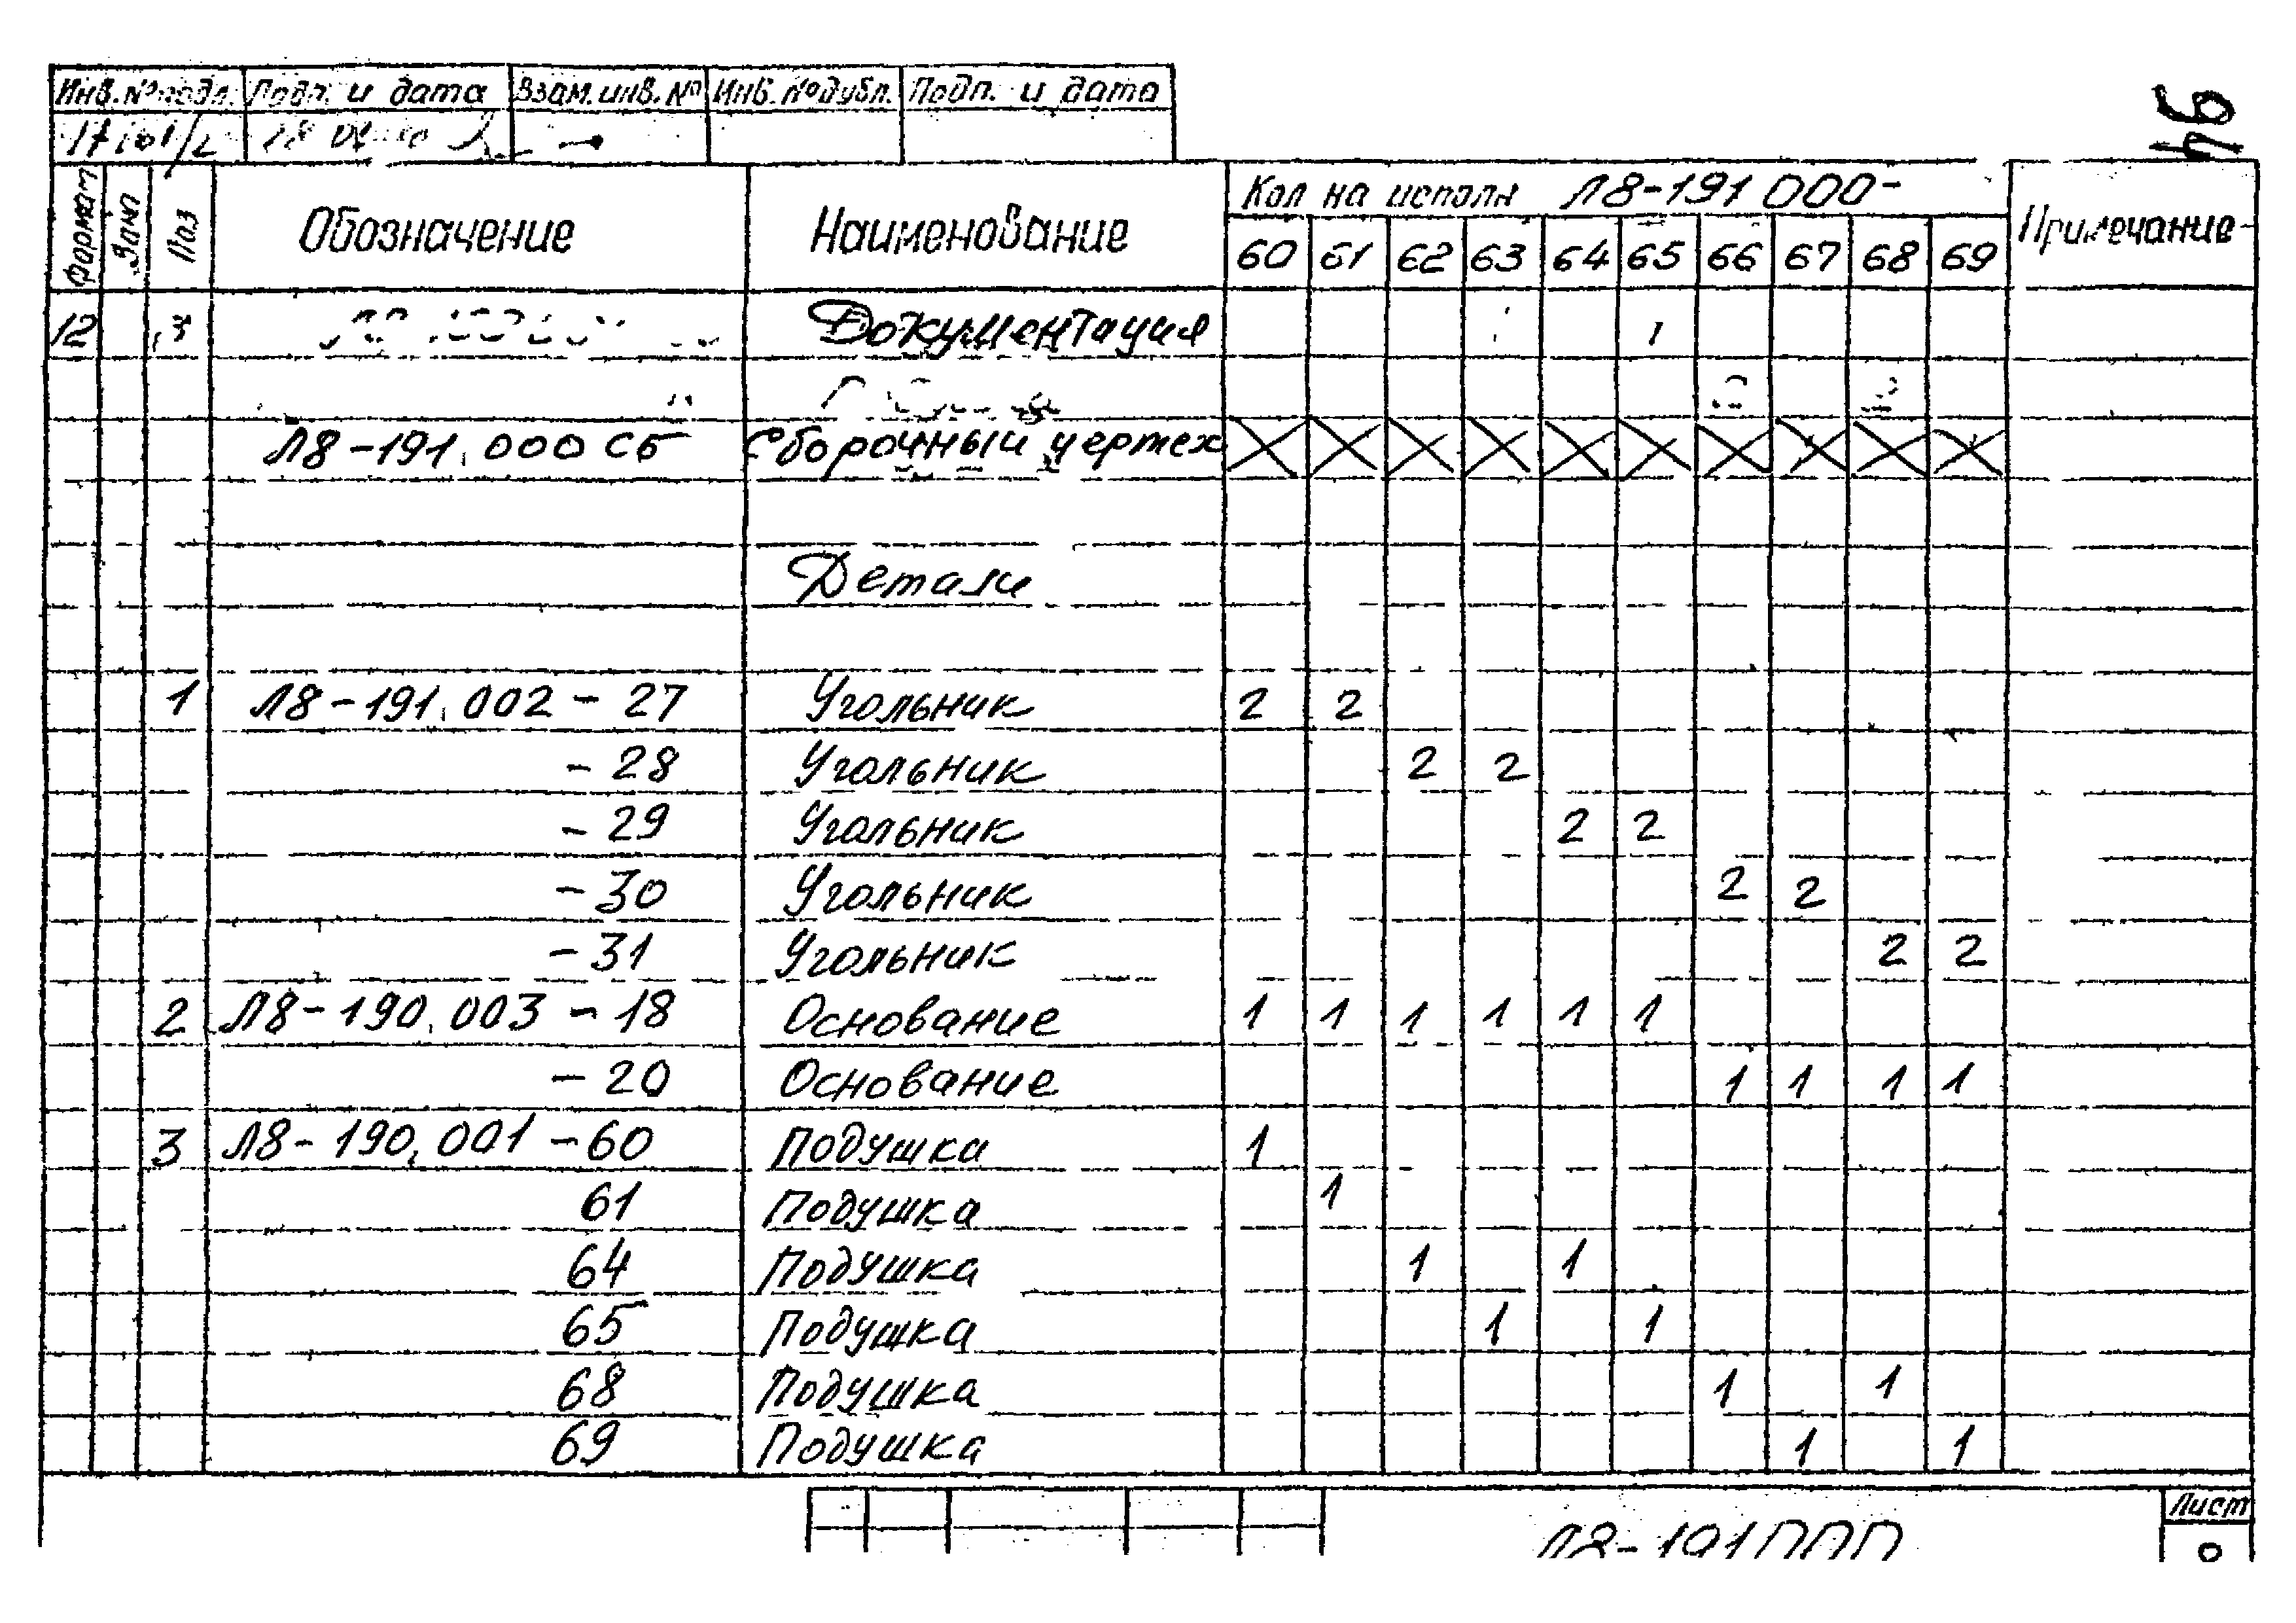 46
Инв. № подл. Подп. и дата Взам. инв. № Инв. № дубл. Подп. и дата
Формат Зона Поз Обозначение Наименование Кол на исполн Л8-191 000- Примечание
60 61 62 63 64 65 66 67 68 69
12 3 Документация
Л8-191.000 СБ Сборочный чертеж
Детали
1 Л8-191.002 - 27 Угольник 2 2
- 28 Угольник 2 2
- 29 Угольник 2 2
- 30 Угольник 2 2
- 31 Угольник 2 2
2 Л8-190.003 - 18 Основание 1 1 1 1 1 1
- 20 Основание 1 1 1 1
3 Л8-190.001 - 60 Подушка 1
61 Подушка 1
64 Подушка 1 1
65 Подушка 1 1
68 Подушка 1 1
69 Подушка 1 1
Л8-191 000 Лист